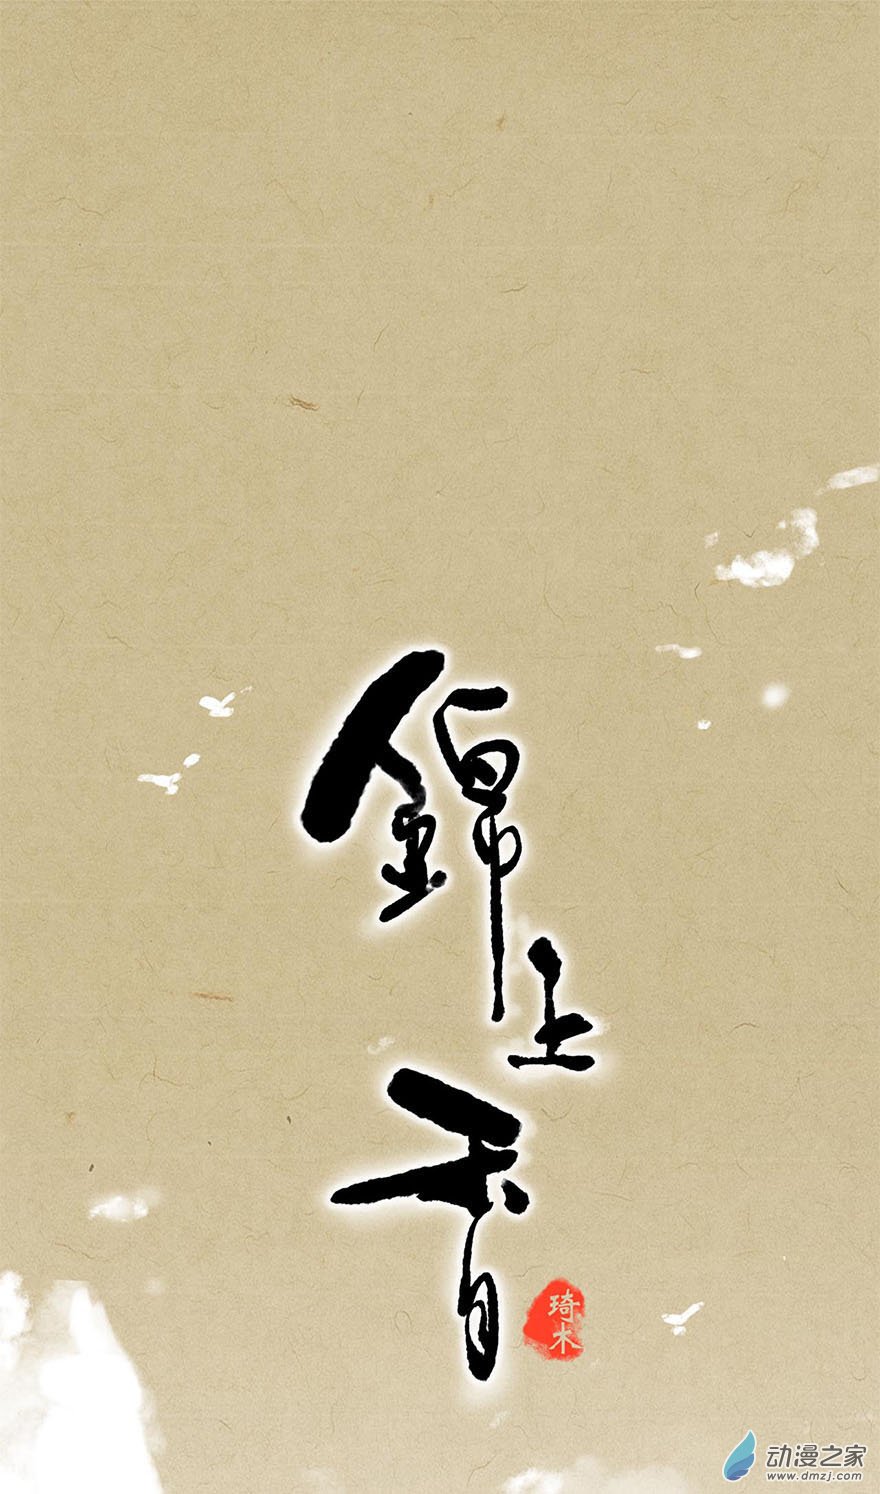 錦上香
琦木
动漫之家
www.dmzj.com